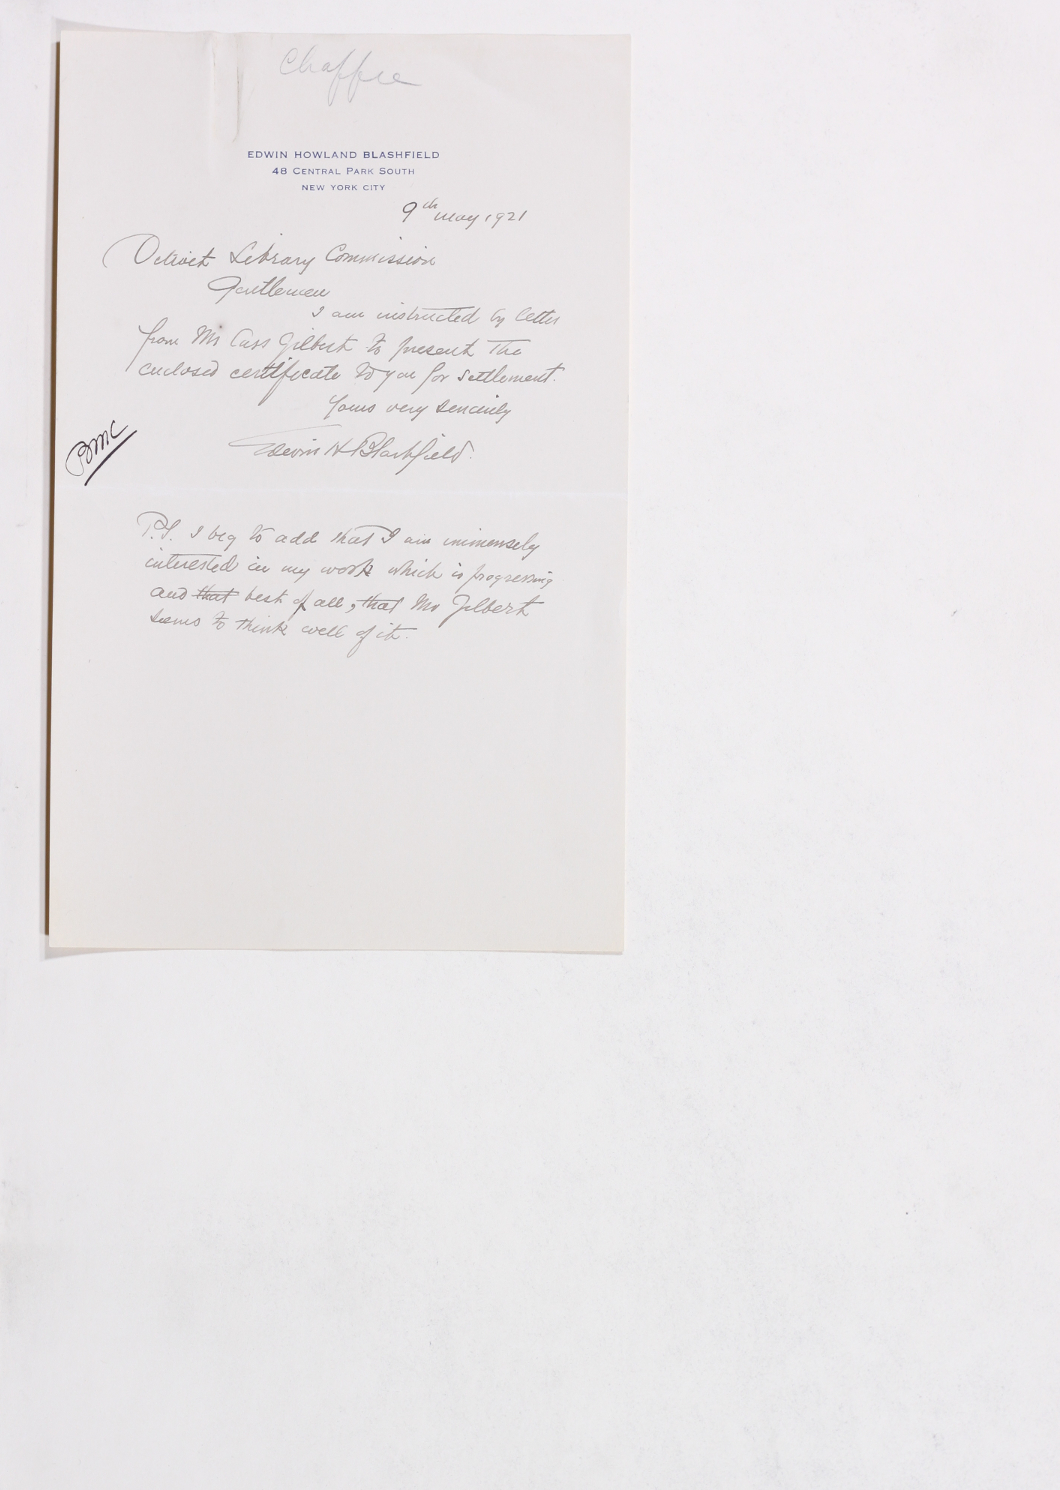 Chaffee
EDWIN HOWLAND BLASHFIELD
48 CENTRAL PARK SOUTH
NEW YORK CITY
9th May 1921
Detroit Library Commission
Gentlemen
I am instructed by letter
from Mr Cass Gilbert to present the
enclosed certificate to you for settlement.
Yours very sincerely
Edwin H Blashfield.
BMC
P.S. I beg to add that I am immensely
interested in my work which is progressing
and that best of all, that Mr Gilbert
seems to think well of it.